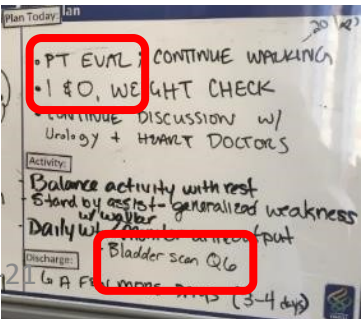 Plan Today: lan
• PT EVAL, CONTINUE WALKING
• I & O, WEIGHT CHECK
• CONTINUE DISCUSSION w/
Urology + HEART DOCTORS
Activity:
- Balance activity with rest
- Stand by assist - generalized weakness
w/ walker
- Daily wt / output
- Bladder scan Q6
Discharge:
21 A FEW MORE DAYS (3-4 days)